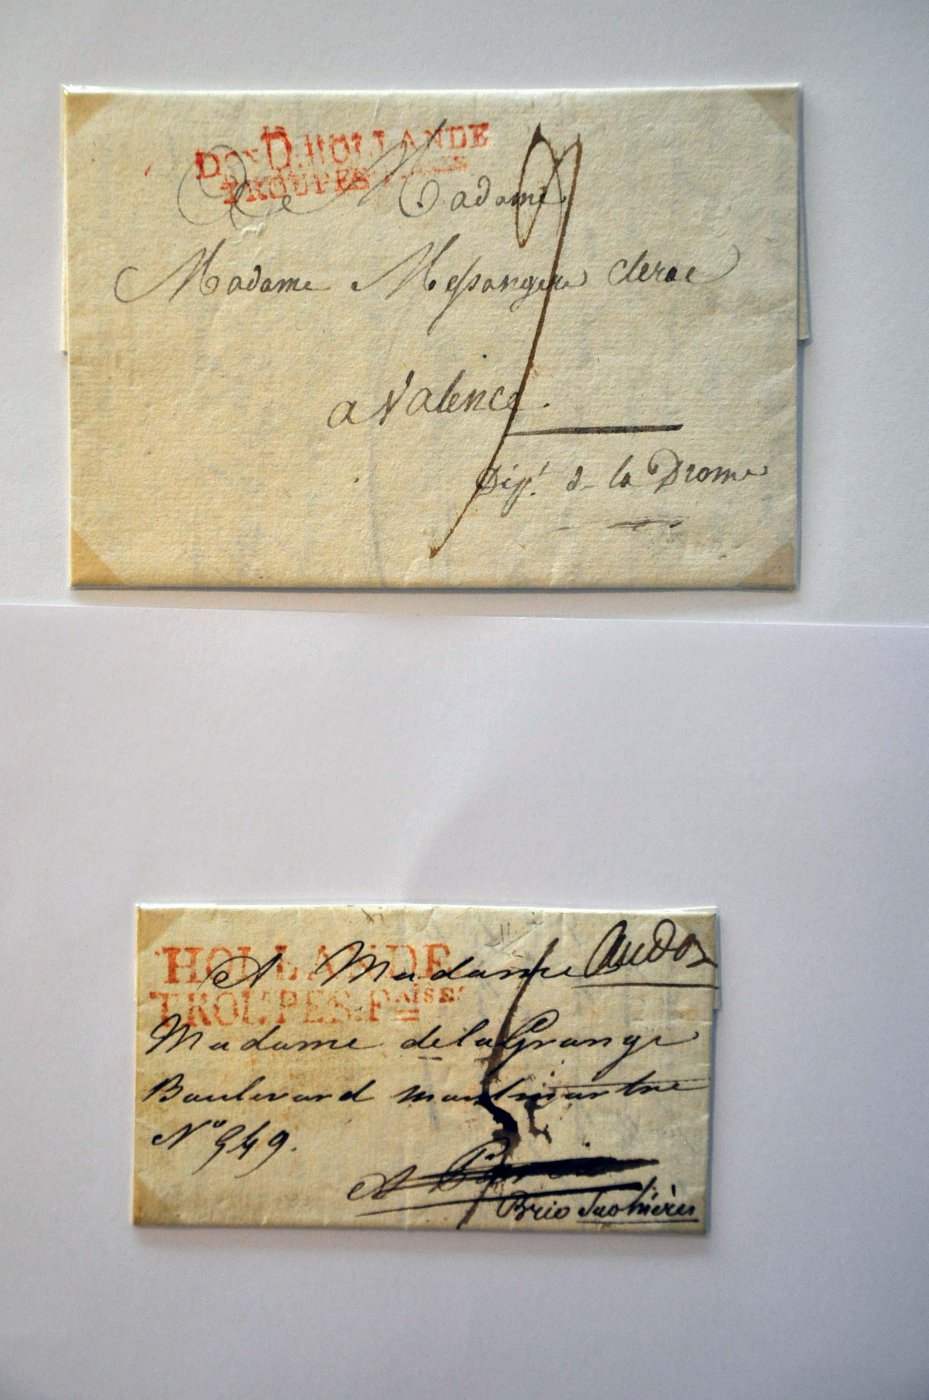 Don D. HOLLANDE
TROUPES
A Madame
Madame Messangere Clerac
a Valence.
Dépt. de la Drome
HOLLANDE
TROUPES. Fçaises
A Madame
Madame de la Grange
Boulevard montmartre
N° 549.
A Paris
Brie